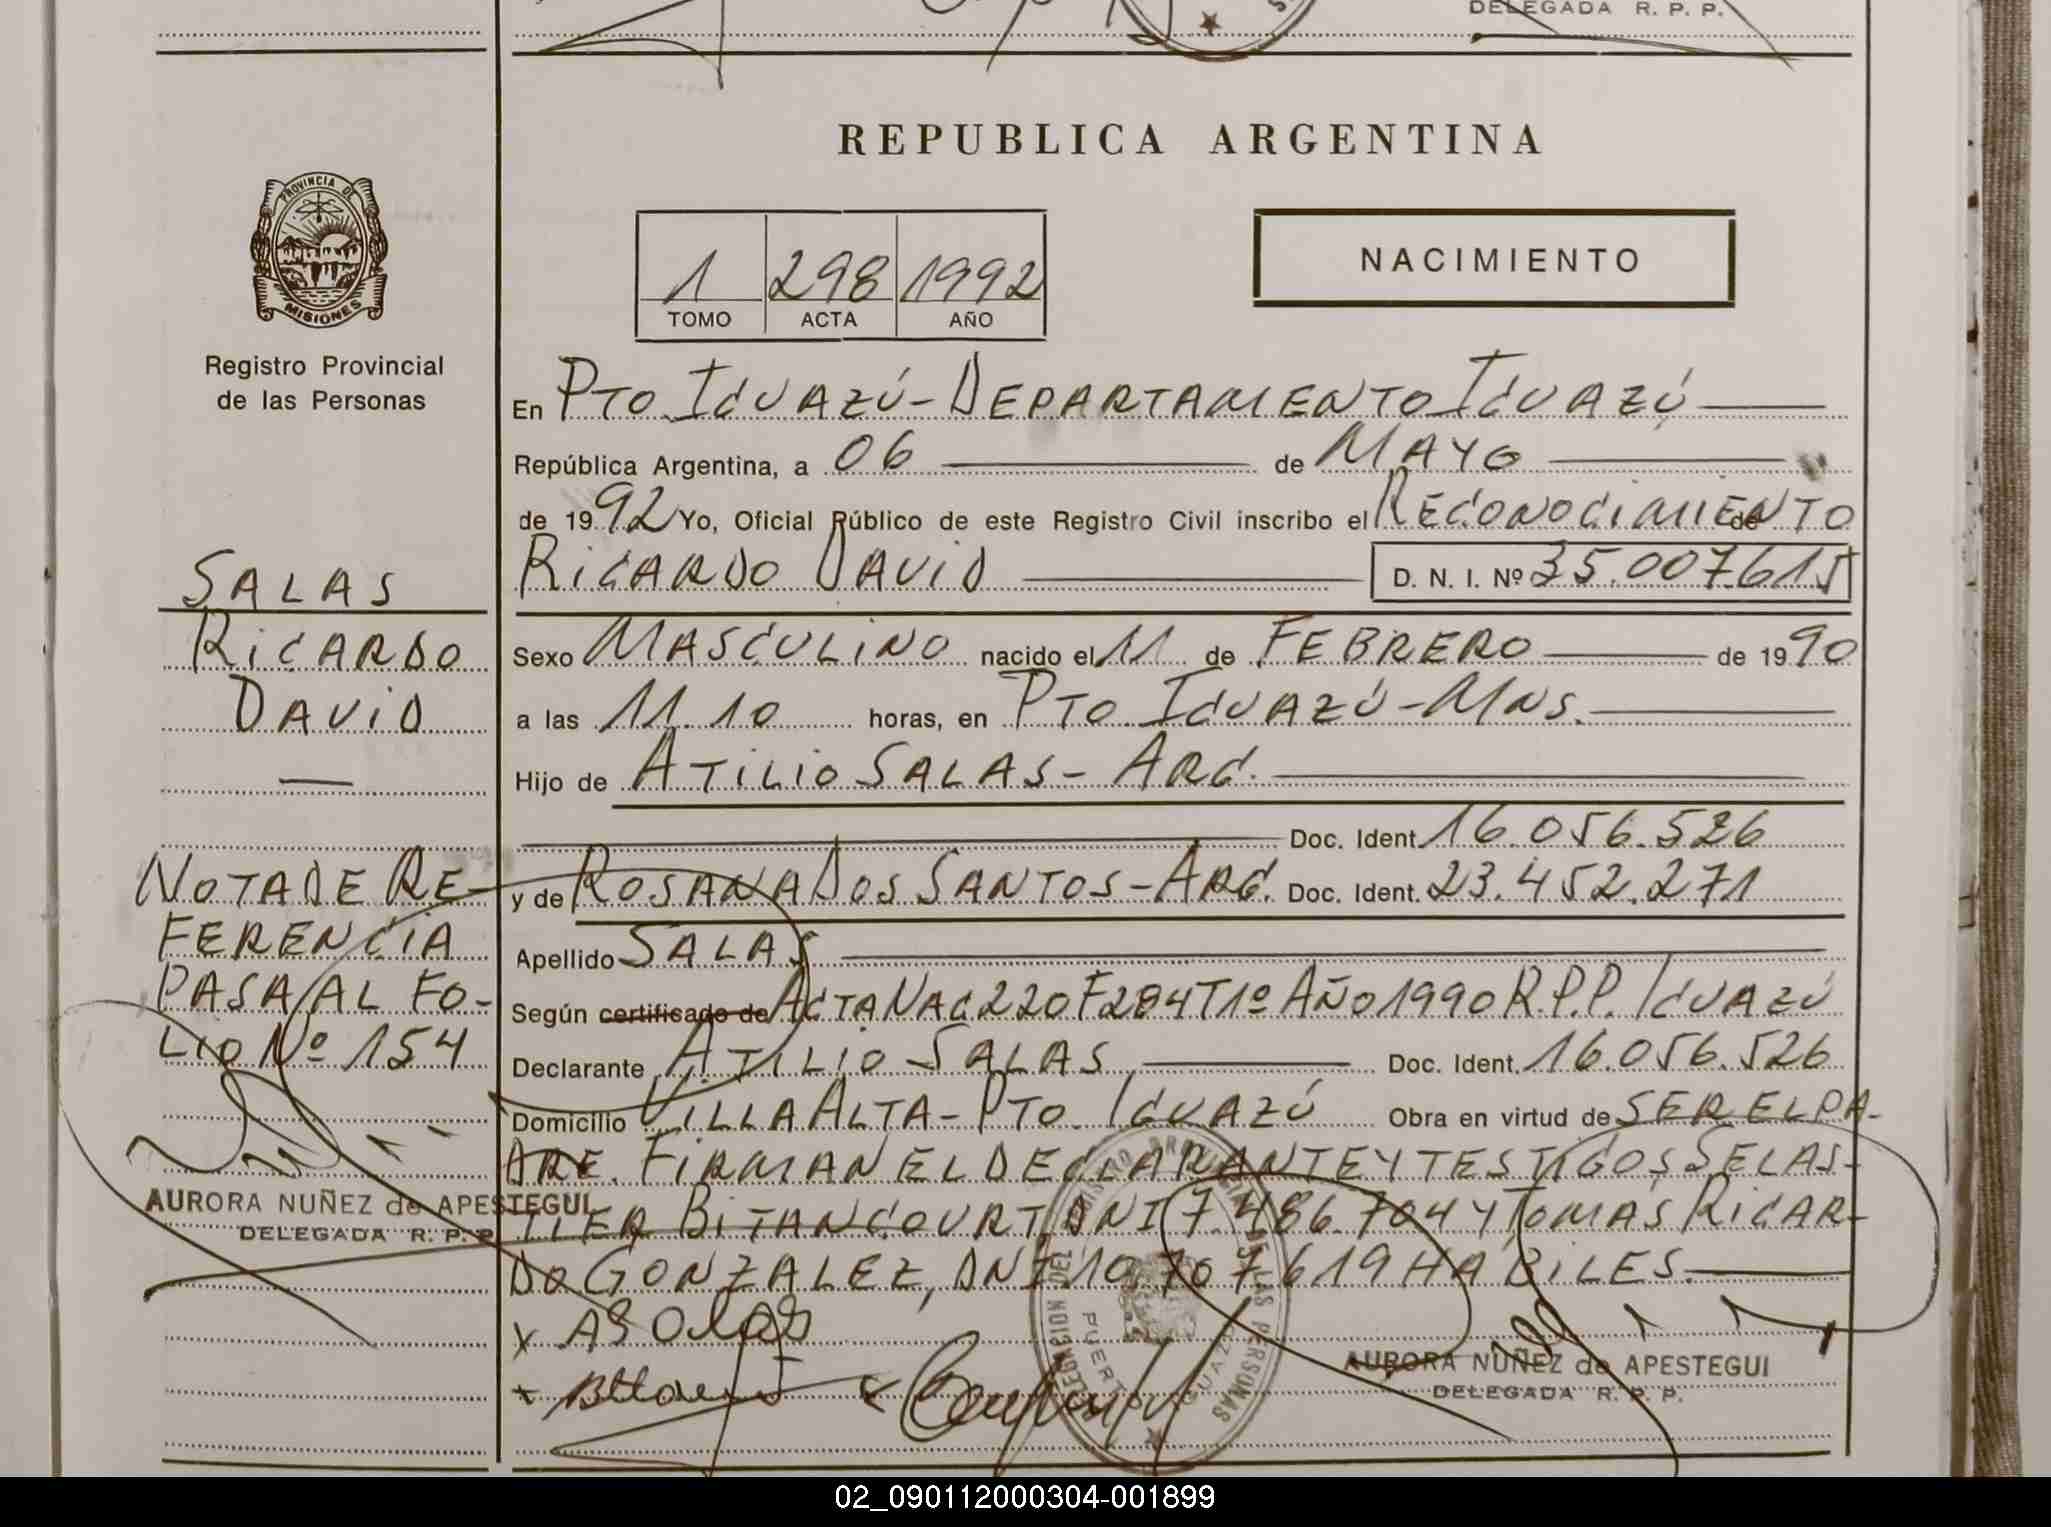 DELEGADA R. P. P.
REPUBLICA ARGENTINA
PROVINCIA DE
MISIONES
Registro Provincial
de las Personas
1 298 1992
TOMO ACTA AÑO
NACIMIENTO
En PTO. IGUAZÚ - DEPARTAMENTO IGUAZÚ
República Argentina, a 06 de MAYO
de 1992 Yo, Oficial Público de este Registro Civil inscribo el RECONOCIMIENTO de
RICARDO DAVID D. N. I. Nº 35.007615
SALAS
RICARDO
DAVID
Sexo MASCULINO nacido el 11 de FEBRERO de 1990
a las 11.10 horas, en PTO. IGUAZÚ - MNS.
Hijo de ATILIO SALAS - ARG.
Doc. Ident. 16.056.526
y de ROSANA DOS SANTOS - ARG. Doc. Ident. 23.452.271
Apellido SALAS
Según certificado de ACTA NAC 220 F284 T1º AÑO 1990 R.P.P. IGUAZÚ
Declarante ATILIO SALAS Doc. Ident. 16.056.526
Domicilio VILLA ALTA - PTO. IGUAZÚ Obra en virtud de SER EL PA-
DRE. FIRMAN EL DECLARANTE Y TESTIGOS SELAS-
TIER BITANCOURT, DNI 7.486.704 Y TOMÁS RICAR-
DO GONZALEZ, DNI 10.707.619 HABILES.
NOTA DE RE-
FERENCIA
PASA AL FO-
LIO Nº 154
AURORA NUÑEZ de APESTEGUI
DELEGADA R. P. P.
x A Salas
DELEGACION DEL REGISTRO PROVINCIAL DE LAS PERSONAS
PUERTO IGUAZU
AURORA NUÑEZ de APESTEGUI
DELEGADA R. P. P.
02_090112000304-001899